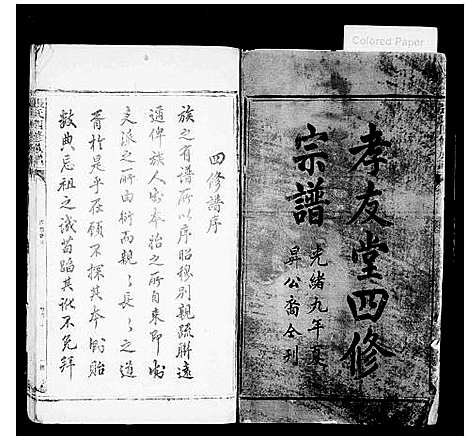 Colored Paper
孝友堂四修
宗譜
光緒九年夏
昇公裔仝刊
四修譜序
族之有譜所以序昭穆別親疏聯遠
邇俾族人知本始之所自來即知
支派之所由衍而親親長長之道
胥於是乎在顧不探其本則貽
數典忘祖之誠苟蹈其訛不免拜